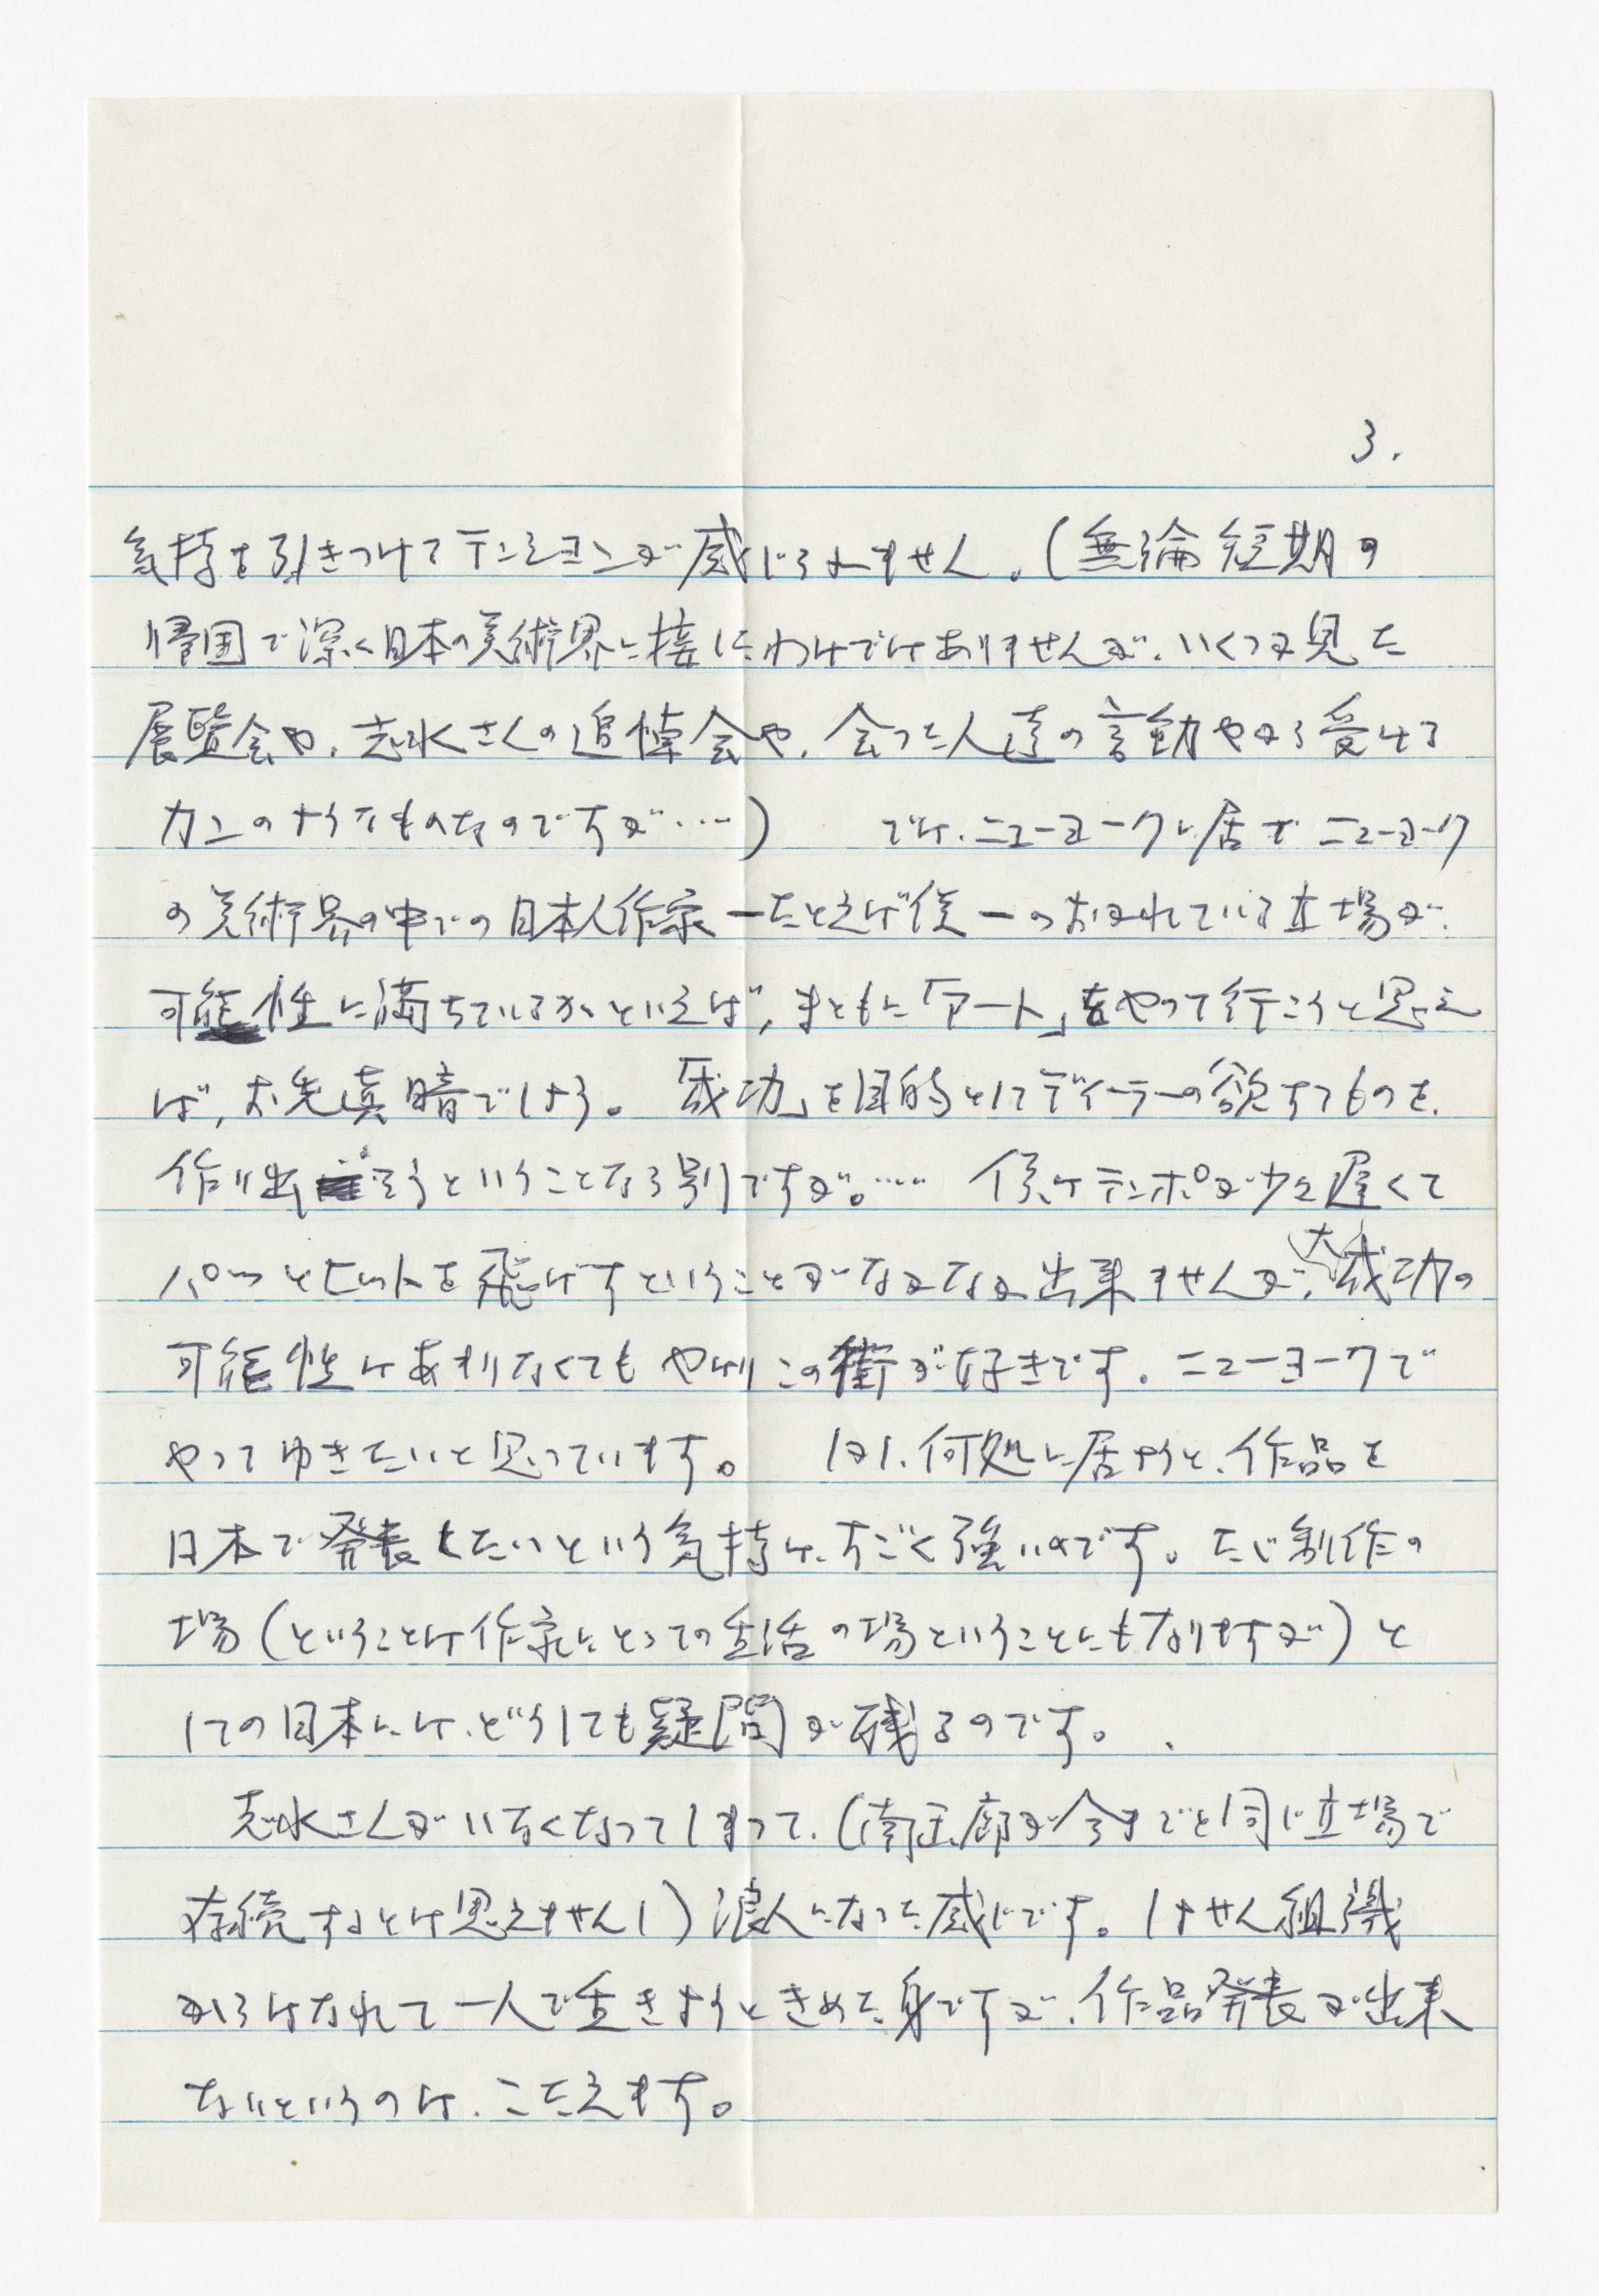 3.
気持を引きつけてテンションが感じられません。(無論短期の
帰国で深く日本の美術界に接したわけではありませんが、いくつか見た
展覧会や、志水さんの追悼会や、会った人達の言動やから受ける
カンのようなものなのですが……)　では、ニューヨークに居て ニューヨーク
の美術界の中での日本人作家―たとえば僕―のおかれている立場が、
可能性に満ちているかといえば、まともに「アート」をやって行こうと思え
ば、お先真暗でしょう。「成功」を目的としてディーラーの欲するものを、
作り出そうということなら別ですが。…… 僕はテンポが少々遅くて
パッとヒットを飛ばすということがなかなか出来ませんが、大成功の
可能性はあまりなくても やはりこの街が好きです。ニューヨークで
やってゆきたいと思っています。　しかし、何処に居ようと、作品を
日本で発表したいという気持は、すごく強いのです。ただ制作の
場(ということは作家にとっての生活の場ということにもなりますが)と
しての日本には、どうしても疑問が残るのです。
志水さんがいなくなってしまって、(南画廊が今までと同じ立場で
存続するとは思えませんし)浪人になった感じです。しょせん組織
からはなれて一人で生きようときめた身ですが、作品発表が出来
ないというのは、こたえます。